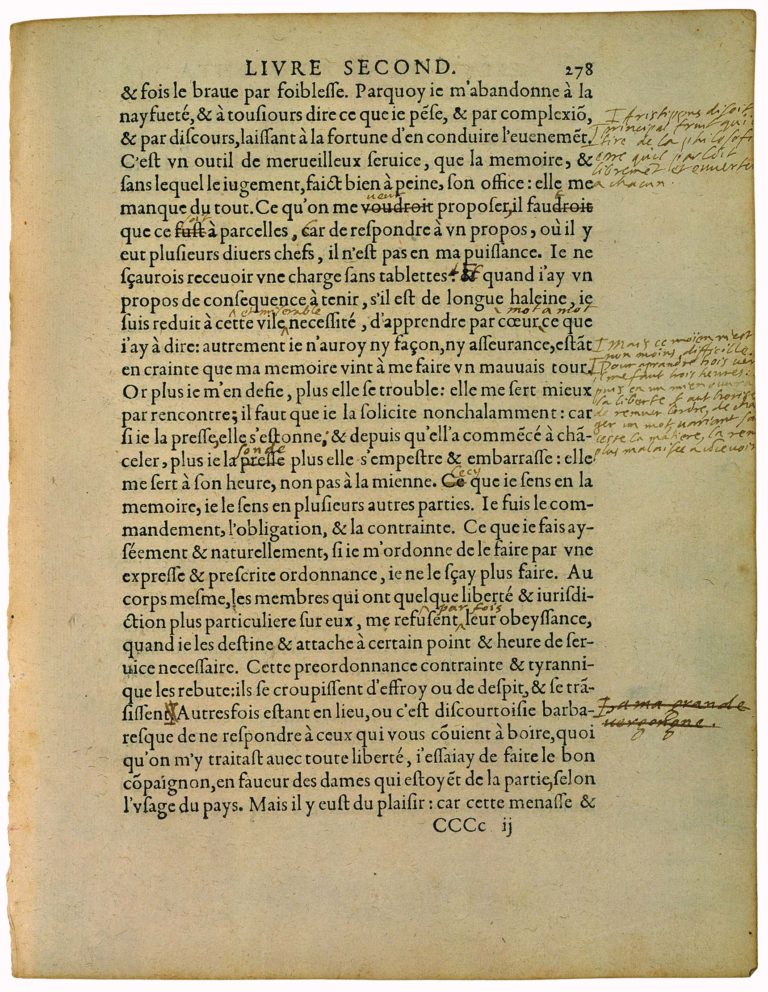 LIVRE SECOND. 278
& fois le braue par foibleſſe. Parquoy ie m'abandonne à la
nayfueté, & à touſiours dire ce que ie pẽſe, & par complexiõ,
& par diſcours, laiſſant à la fortune d'en conduire l'euenemẽt.
C'eſt vn outil de merueilleux ſeruice, que la memoire, &
ſans lequel le iugement, faict bien à peine, ſon office : elle me
manque du tout. Ce qu'on me voudroit propoſer, il faudroit
veut
que ce fuſt à parcelles, Car de reſpondre à vn propos, où il y
eut pluſieurs diuers chefs, il n'eſt pas en ma puiſſance. Ie ne
ſçaurois receuoir vne charge ſans tablettes : & quand i'ay vn
propos de conſequence à tenir, s'il eſt de longue haleine, ie
et miserable
mot a mot
ſuis reduit à cette vile neceſſité, d'apprendre par cœur ce que
i'ay à dire: autrement ie n'auroy ny façon, ny aſſeurance, eſtãt
en crainte que ma memoire vint à me faire vn mauuais tour.
Or plus ie m'en defie, plus elle ſe trouble: elle me ſert mieux
par rencontre; il faut que ie la ſolicite nonchalamment : car
ſi ie la preſſe, elle s'eſtonne; & depuis qu'ell'a commẽcé à chã-
sonde
celer, plus ie la preſſe plus elle s'empeſtre & embarraſſe : elle
Cecy
me ſert à ſon heure, non pas à la mienne. Ce que ie ſens en la
memoire, ie le ſens en pluſieurs autres parties. Ie fuis le com-
mandement, l'obligation, & la contrainte. Ce que ie fais ay-
ſéement & naturellement, ſi ie m'ordonne de le faire par vne
expreſſe & preſcrite ordonnance, ie ne le ſçay plus faire. Au
corps meſme, les membres qui ont quelque liberté & iuriſdi-
par fois
ction plus particuliere ſur eux, me refuſent leur obeyſſance,
quand ie les deſtine & attache à certain point & heure de ſer-
uice neceſſaire. Cette preordonnance contrainte & tyranni-
que les rebute: ils ſe croupiſſent d'effroy ou de deſpit, & ſe trã-
ſiſſent. Autresfois eſtant en lieu, ou c'eſt diſcourtoiſie barba-
reſque de ne reſpondre à ceux qui vous cõuient à boire, quoi
qu'on m'y traitaſt auec toute liberté, i'eſſaiay de faire le bon
cõpaignon, en faueur des dames qui eſtoyẽt de la partie, ſelon
l'vſage du pays. Mais il y euſt du plaiſir : car cette menaſſe &
CCCc ij
disoit
principal fruit
tire de la philosofi
estre quil parloit
a chacun.
Mais ce moïen m'est
non moins difficille.
Pour aprandre trois ver
me faut trois heures:
puis en un mien ouvra
la liberte
de remuer lordre, de chā
ger un mot, variant sā
la matiere, la ren
plus malaisee a
a ma grande
vergogne.